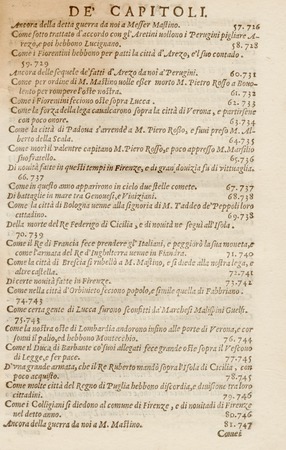 DE' CAPITOLI.
Ancora della detta guerra da noi a Messer Mastino. 57.726
Come sotto trattato d'accordo con gl'Aretini uollono i Perugini pigliare A-
rezo, e poi hebbono Lucignano. 58.728
Come i Fiorentini hebbono per patti la città d'Arezo, e'l suo contado.
59.729
Ancora delle sequele de'fatti d'Arezo da noi a'Perugini. 60.731
Come per ordine di M. Mastino uolle esser morto M. Piero Rosso, e douuto-
lo per rompere l'oste nostra. 61.732
Come i Fiorentini feciono oste sopra Lucca. 61.733
Come la forza della lega caualcarono sopra la città di Verona, e partirsene
con poco onore. 63.734
Come la città di Padoua s'arrendè a M. Piero Rosso, e fuui preso M. Al-
berto della Scala. 64.735
Come morì il valentre capitano M. Piero Rosso, e poco appresso M. Marsilio
suo fratello. 65.736
Di nouità fatte in questi tempi in Firenze, e di gran douizia fu di vittuaglia.
66.737
Come in questo anno apparirono in cielo due stelle comete. 67.737
Di battaglie in mare tra Genouesi, e Viniziani. 68.737
Come la città di Bologna uenne alla signoria di M. Taddeo de'Peppoli loro
cittadino. 69.738
Della morte del Re Federigo di Cicilia, e di nouità ne seguì all'Isola.
70.739
Come il Re di Francia fece prendere gl'Italiani, e peggiorò la sua moneta, e
come l'armata del Re d'Inghilterra uenne in Fiandra. 71.740
Come la città di Brescia si rubellò a M. Mastino, e si diede alla nostra lega, e
altre castella. 72.741
Di certe nouità fatte in Firenze. 73.742
Come nella città d'Orbineto feciono popolo, e simile quella di Fabbriano.
74.743
Come certa gente di Lucca furono sconfitti da'Marchesi Malispini Guelfi.
75.743
Come la nostra oste di Lombardia andorono infino alle porte di Verona, e cor
sonui il palio, ed hebbono Montecchio. 76.744
Come il Duca di Barbante co'suoi allegati fece grande oste sopra il Vescouo
di Legge, e fer pace. 77.745
D'vna grande armata, che il Re Ruberto mandò sopra l'Isola di Cicilia, con
poco acquisto. 78.745
Come molte città del Regno di Puglia hebbono discordia, e diuisione tra loro
cittadini. 79.746
Come i Colligiani si diedono al comune di Firenze, e di nouitadi di Firenze
nel detto anno. 80.746
Ancora della guerra da noi a M. Mastino. 81.747
Come i